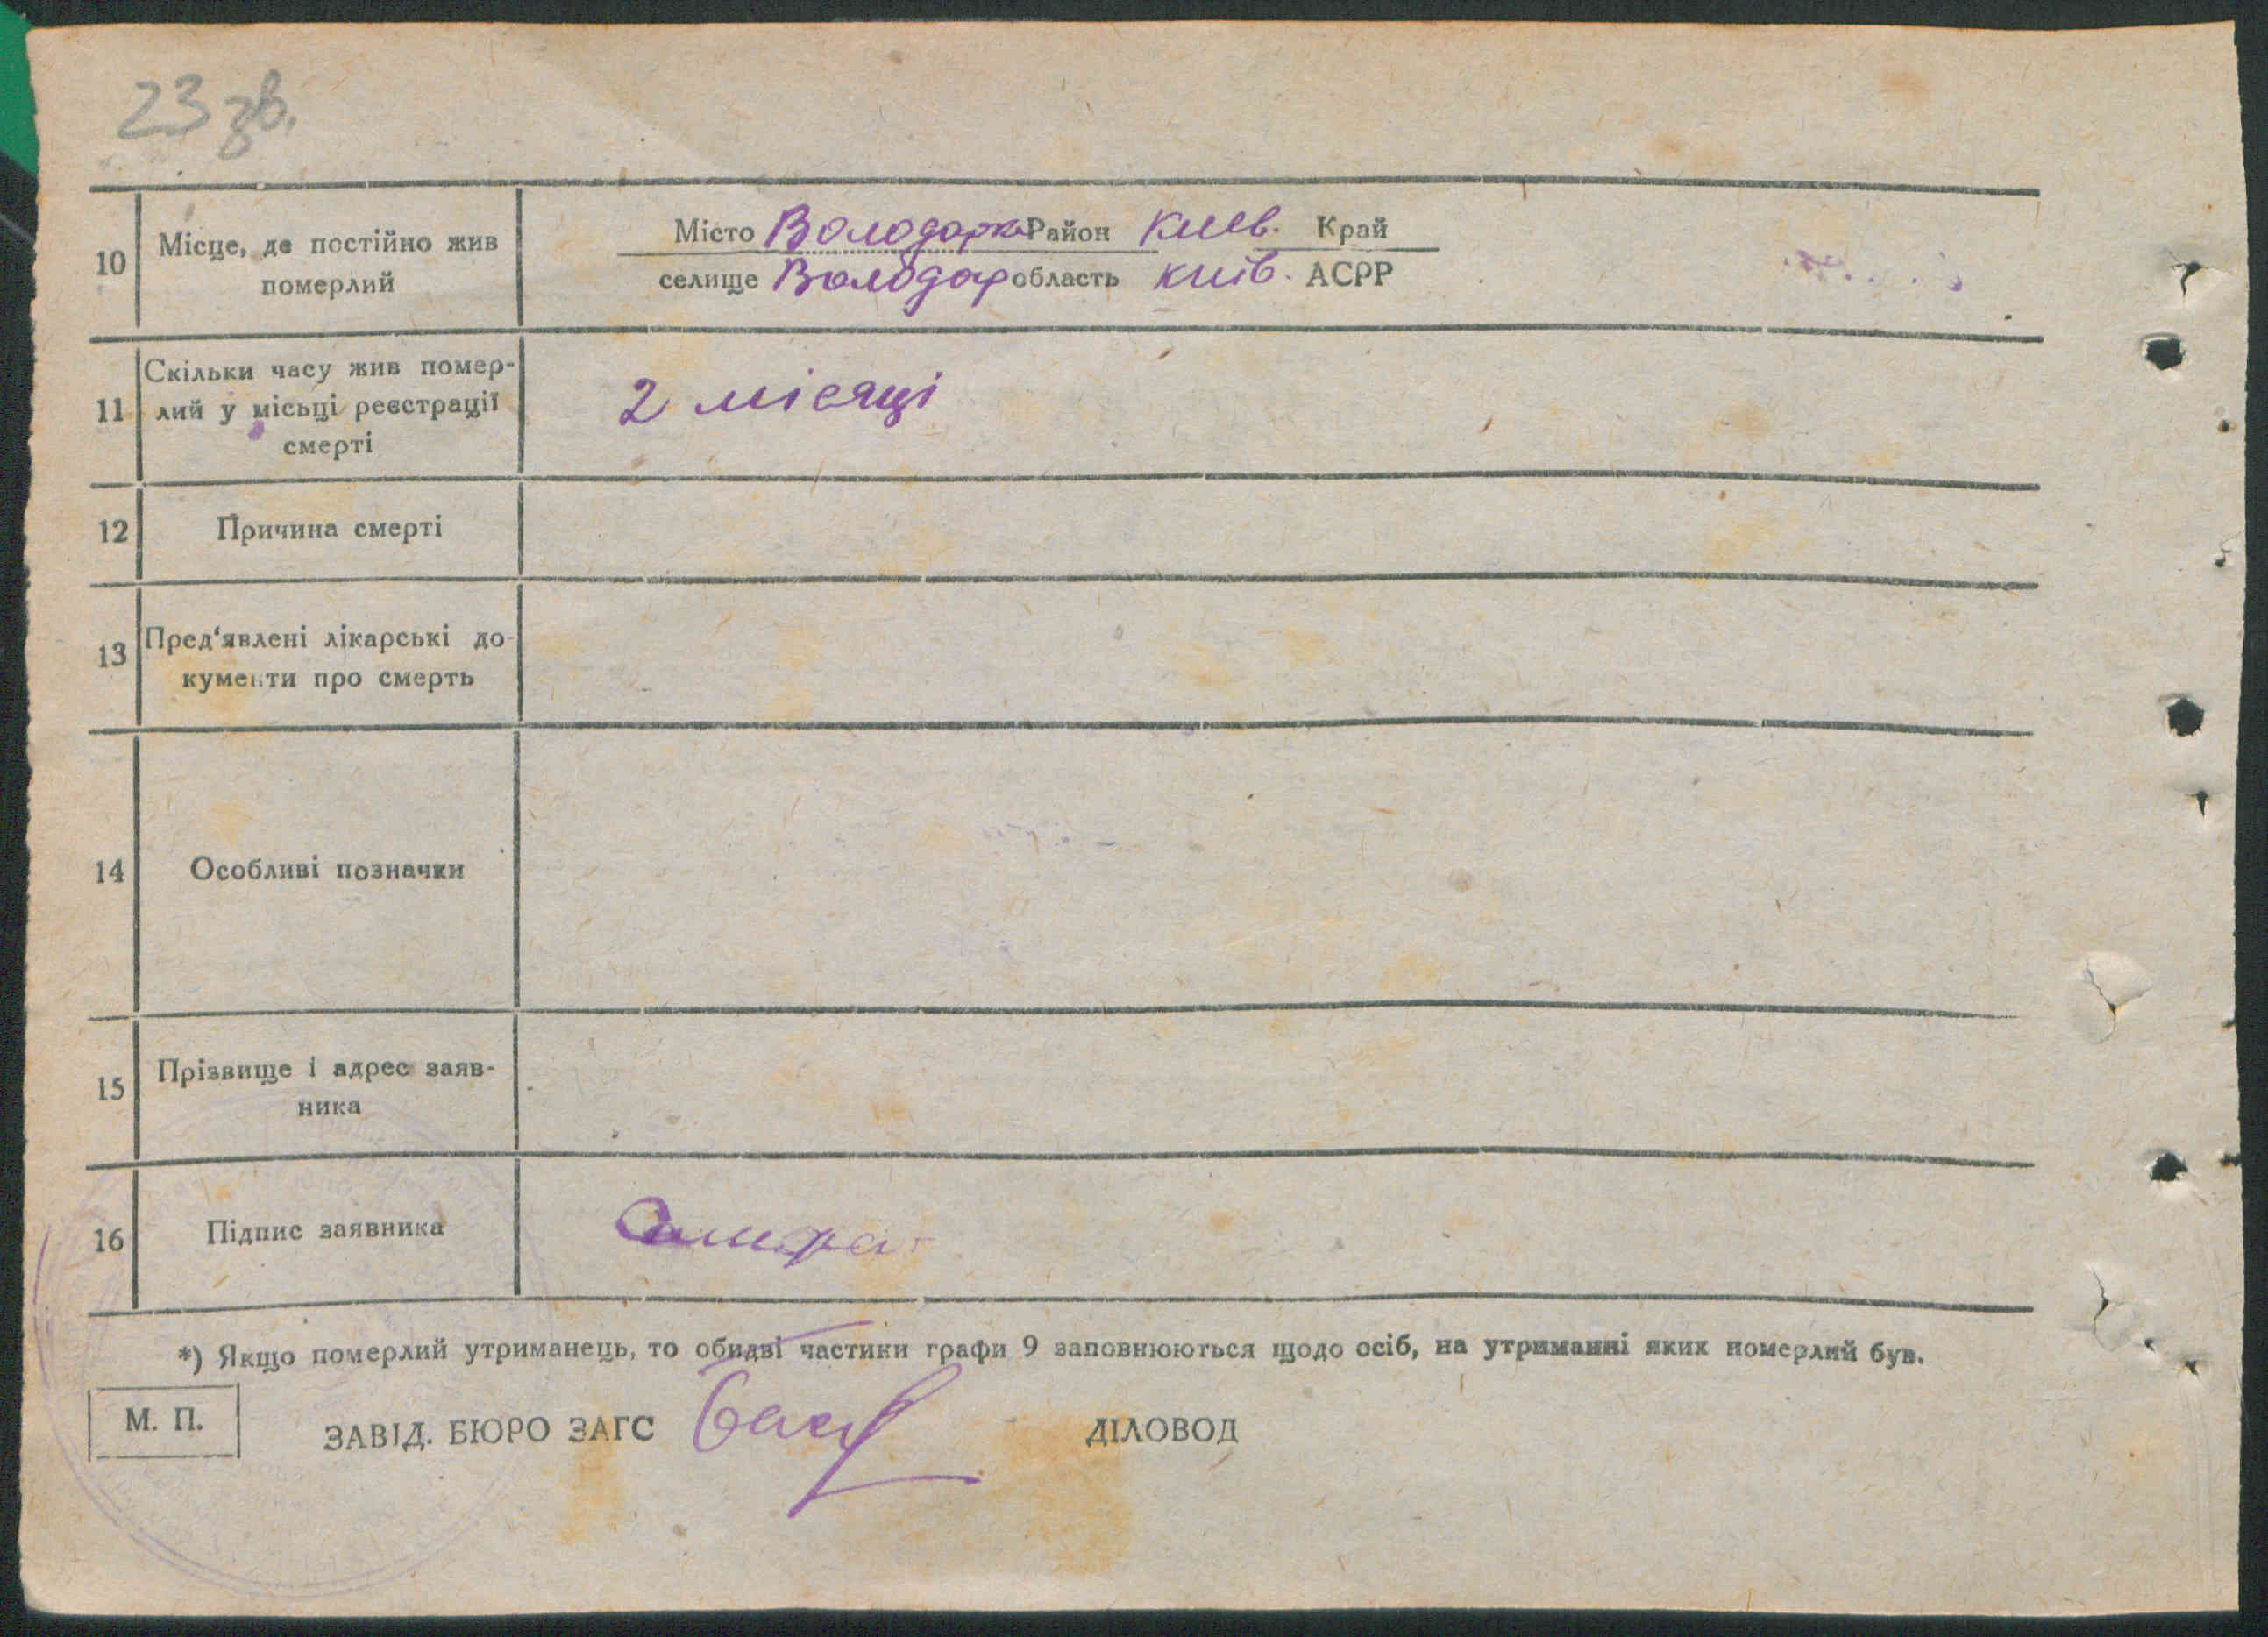 23 зв.
10 Місце, де постійно жив померлий
Місто Володарка Район Киев. Край
селище Володар область київ. АСРР
11 Скільки часу жив помер-
лий у місьці реєстрації
смерті
2 місяці
12 Причина смерті
13 Пред'явлені лікарські до-
кументи про смерть
14 Особливі позначки
15 Прізвище і адрес заяв-
ника
16 Підпис заявника
*) Якщо померлий утриманець, то обидві частини графи 9 заповнюються щодо осіб, на утриманні яких померлий був.
М. П.
ЗАВІД. БЮРО ЗАГС ДІЛОВОД